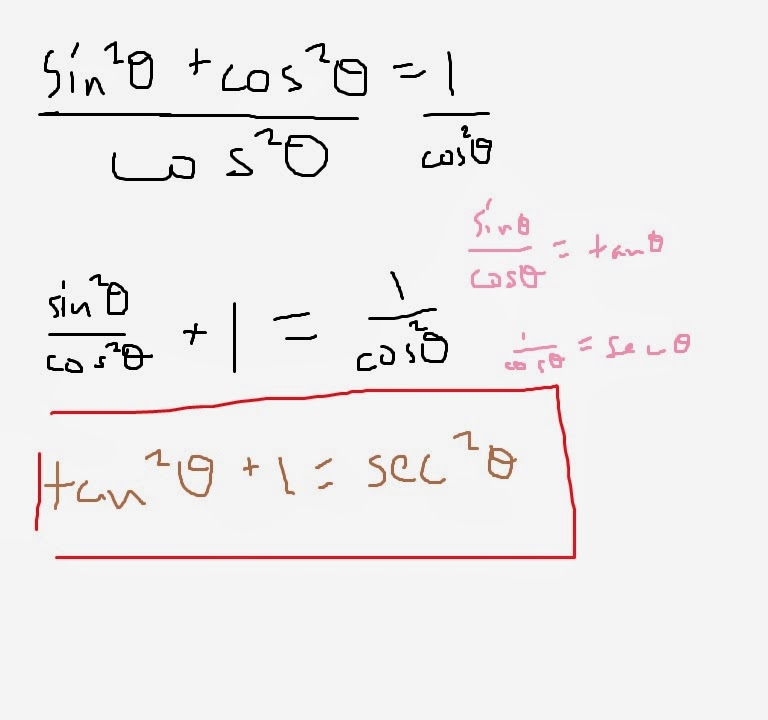 sin²θ + cos²θ / cos²θ = 1 / cos²θ
sinθ / cosθ = tanθ
sin²θ / cos²θ + 1 = 1 / cos²θ
1 / cosθ = secθ
tan²θ + 1 = sec²θ